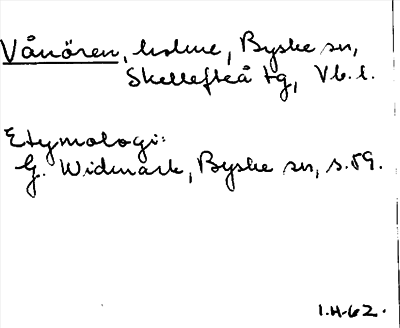 Vånören, holme, Byske sn,
Skellefteå tg, Vb. l.
Etymologi:
G. Widmark, Byske sn, s. 59.
I.H-62.